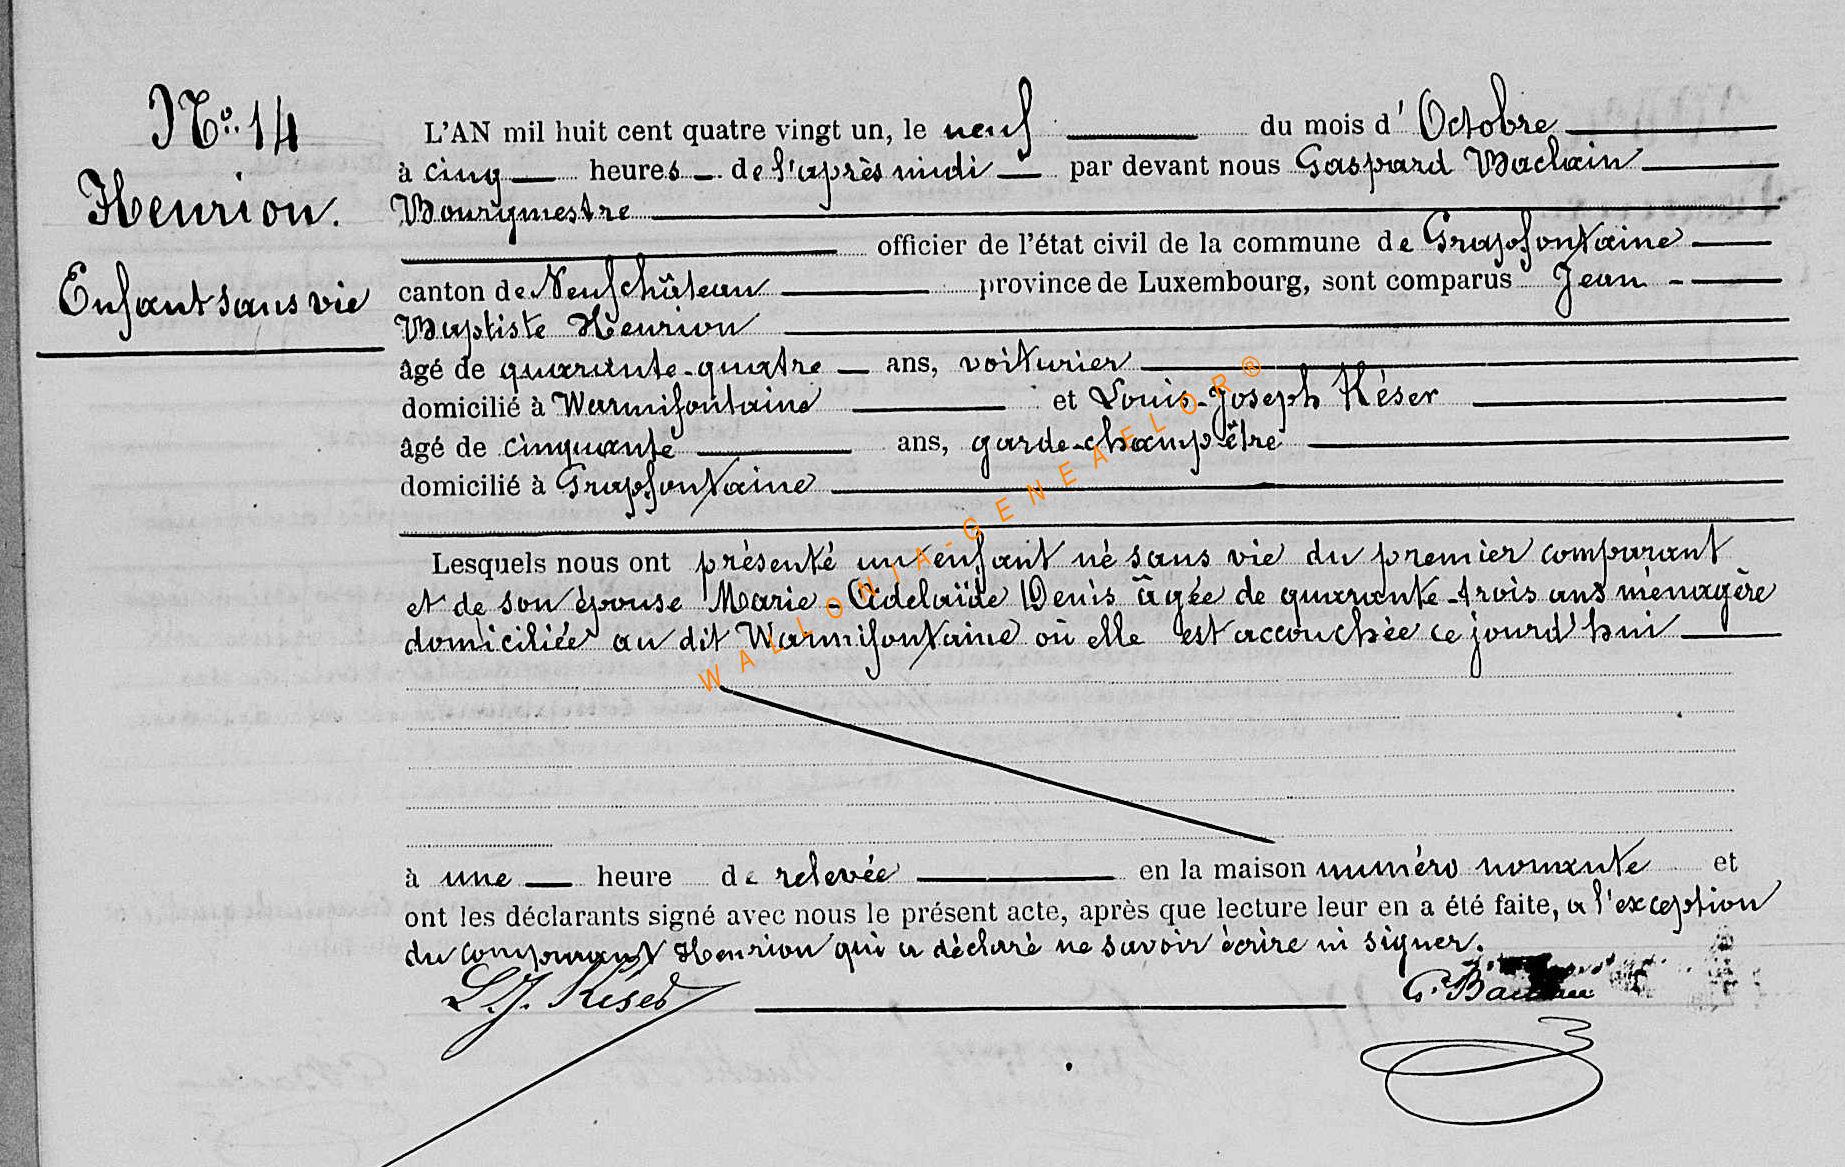 No. 14
Henrion.
Enfant sans vie
L'AN mil huit cent quatre vingt un, le neuf du mois d' Octobre
à cinq heures de l'après midi par devant nous Gaspard Baclain
Bourgmestre
officier de l'état civil de la commune de Grapfontaine
canton de Neufchâteau province de Luxembourg, sont comparus Jean
Baptiste Henrion
âgé de quarante-quatre ans, voiturier
domicilié à Warmifontaine et Louis-Joseph Késer
âgé de cinquante ans, garde-champêtre
domicilié à Grapfontaine
Lesquels nous ont présenté un enfant né sans vie du premier comparant
et de son épouse Marie-Adelaïde Denis âgée de quarante-trois ans ménagère
domiciliée au dit Warmifontaine où elle est accouchée ce jourd'hui
à une heure de relevée en la maison numéro nonante et
ont les déclarants signé avec nous le présent acte, après que lecture leur en a été faite, a l'exception
du comparant Henrion qui a déclaré ne savoir écrire ni signer.
L.J. Késer G. Baclain
WALLONIA-GENEALOR®